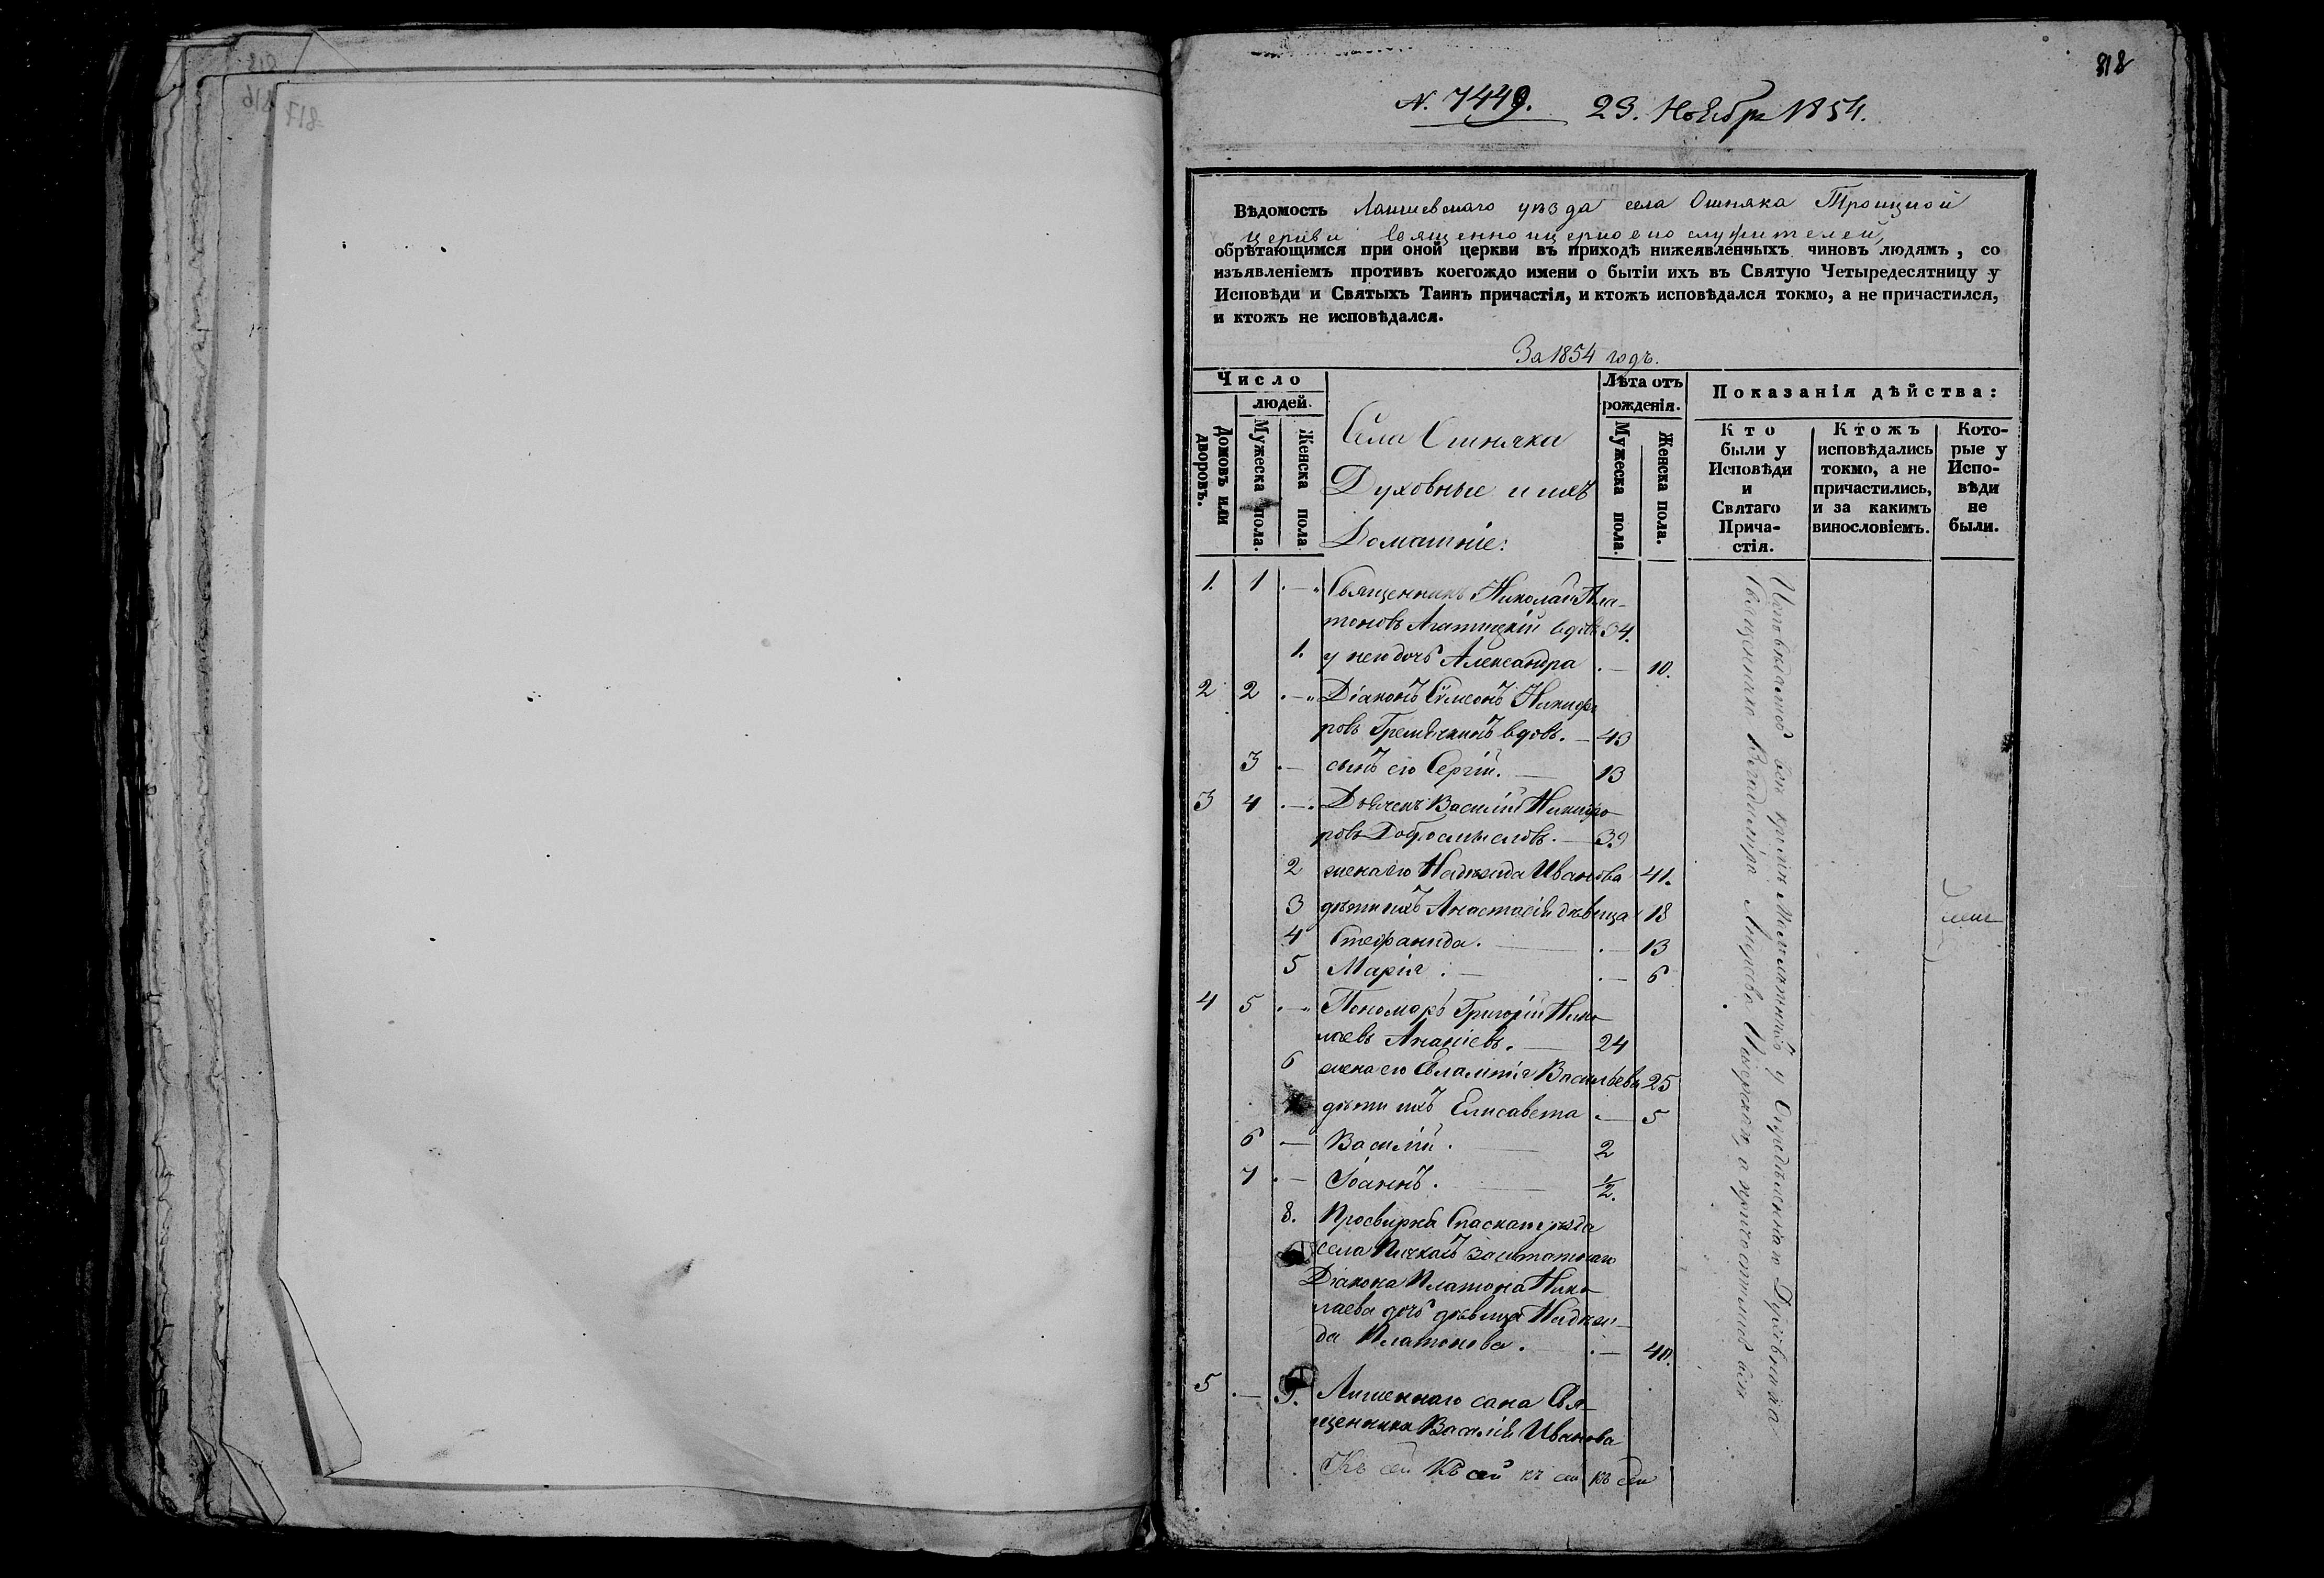 818
N. 7449. 23. Ноября 1854.
Вѣдомость Лаишевскаго уѣзда села Ошняка Троицкой
церкви священноцерковнослужителей,
обрѣтающимся при оной церкви въ приходѣ нижеявленныхъ чиновъ людямъ, со
изъявленіемъ противъ коегождо имени о бытіи ихъ въ Святую Четыредесятницу у
Исповѣди и Святыхъ Таинъ причастія, и ктожъ исповѣдался токмо, а не причастился,
и ктожъ не исповѣдался.
За 1854 годъ.
Число
людей.
Домовъ или дворовъ.
Мужеска пола.
Женска пола
Села Ошняка
Духовные и ихъ
Домашніе:
Лѣта отъ
рожденія.
Мужеска пола.
Женска пола.
Показанія дѣйства:
Кто
были у
Исповѣди
и
Святаго
Прича-
стія.
Ктожъ
исповѣдались
токмо, а не
причастились,
и за какимъ
винословіемъ.
Кото-
рые у
Испо-
вѣди
не
были.
1. 1 . — Священникъ Николай Пла-
тоновъ вдовъ 34.
1. у него дочь Александра . — 10.
2 2 . — Діаконъ Симеонъ Никифо
ровъ Гремячкинъ вдовъ. — 43
3 . — сынъ его Сергій. — 13
3 4 . — Дьячекъ Василій Никифо
ровъ Добросмысловъ. — 39
2 жена его Надежда Иванова 41.
3 дѣти ихъ Анастасія дѣвица 18
4 Стефанида. — . — 13
5 Марія. — . — 6
4 5 . — Пономарь Григорій Нико
лаевъ Ананіевъ. — 24
6 жена его Евлампія Васильева 25
дѣти ихъ Елисавета . — 5
6 — Василій. — 2
7 . — Іоаннъ. — 1/2.
8. Просвирня Спаскаго уѣзда
села заштатнаго
Діакона Платона Нико
лаева дочь дѣвица Надеж-
да Платонова. . — 40.
5 . — 9. Лишеннаго сана Свя-
щенника Василія Иванова
Къ сей Къ сей къ сей къ сей